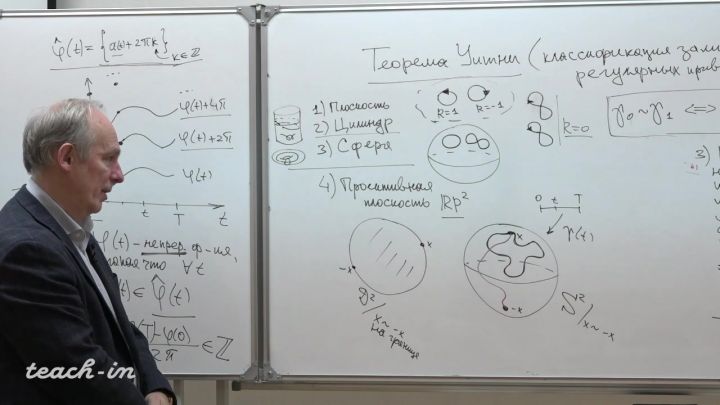 φ̂(t) = { a(t) + 2πk }
k∈ℤ
φ(t)+4π
φ(t)+2π
φ(t)
t T t
(t) - непрер. ф-ия,
что ∀ t
(t) ∈ φ̂(t)
(T)-φ(0)
2π
∈ ℤ
Теорема Уитни (классификация
регулярных
1) Плоскость
2) Цилиндр
3) Сфера
k=1 k=-1
k=0
γ₀ ~ γ₁ ⟺
3)
4) Проективная
плоскость ℝP²
O t T
γ(t)
x
-x
x
-x
D²/
x ~ -x
на границе
S²/x~-x
teach-in